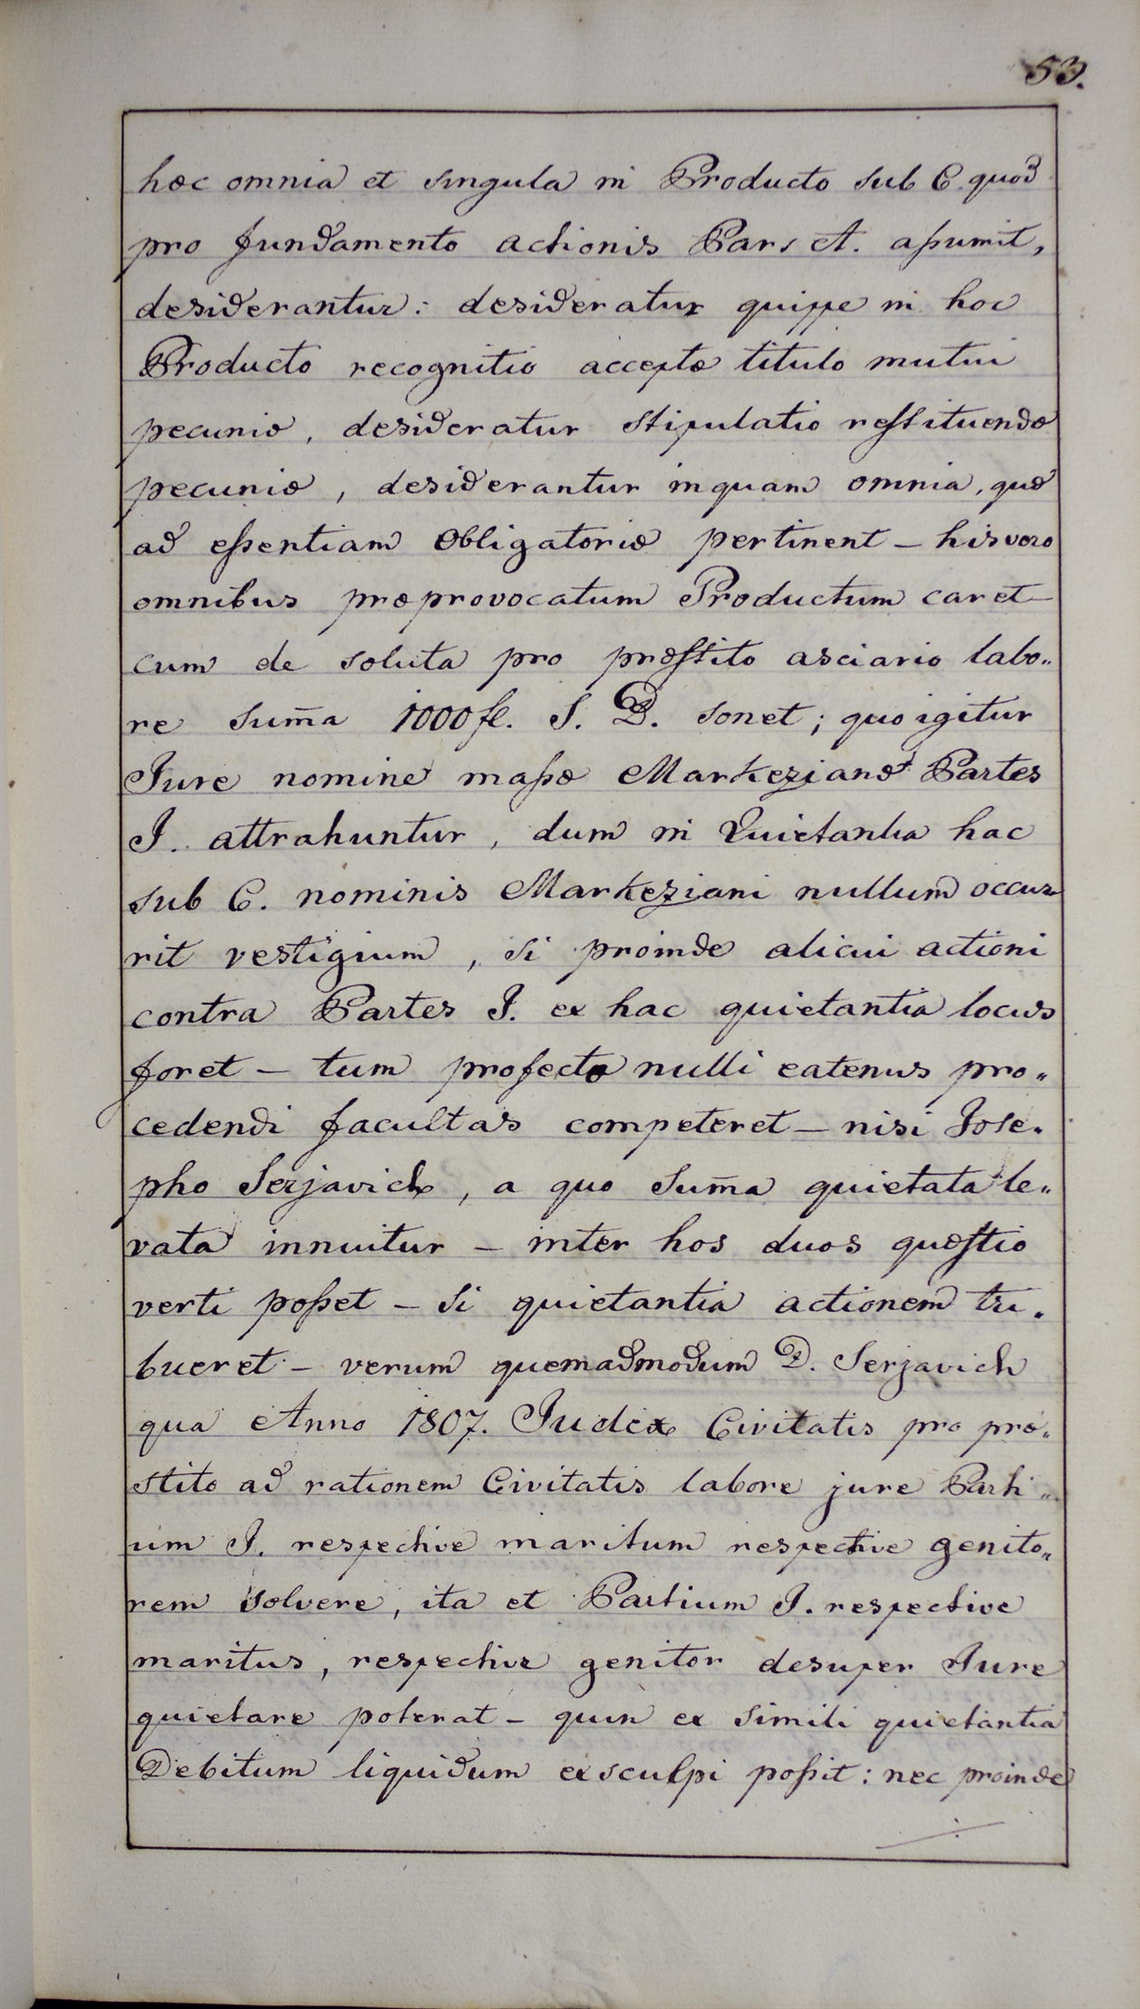 53.
hæc omnia et singula in Producto sub C. quod
pro fundamento actionis Pars A. aßumit,
desiderantur: desideratur quippe in hoc
Producto recognitio acceptæ titulo mutui
pecuniæ, desideratur stipulatio restituendæ
pecuniæ, desiderantur inquam omnia, quæ
ad eßentiam Obligatoriæ pertinent – his vero
omnibus præprovocatum Productum caret
cum de soluta pro præstito asciario labo„
re sum̄a 1000 fl. S. D. sonet; quo igitur
Jure nomine maßæ Markezianæ Partes
J. attrahuntur, dum in Quietantia hac
sub C. nominis Markeziani nullum occur„
rit vestigium, si proinde alicui actioni
contra Partes J. ex hac quietantia locus
foret – tum profecto nulli eatenus pro„
cedendi facultas competeret – nisi Jose„
pho Serjavich, a quo sum̄a quietata le„
vata innuitur – inter hos duos quæstio
verti poßet – si quietantia actionem tri„
bueret – verum quemadmodum D. Serjavich
qua Anno 1807. Judex Civitatis pro præ„
stito ad rationem Civitatis labore jure Parti„
um J. respective maritum respective genito„
rem solvere, ita et Partium J. respective
maritus, respective genitor desuper Jure
quietare poterat – quin ex simili quietantia
Debitum liquidum exsculpi poßit: nec proinde